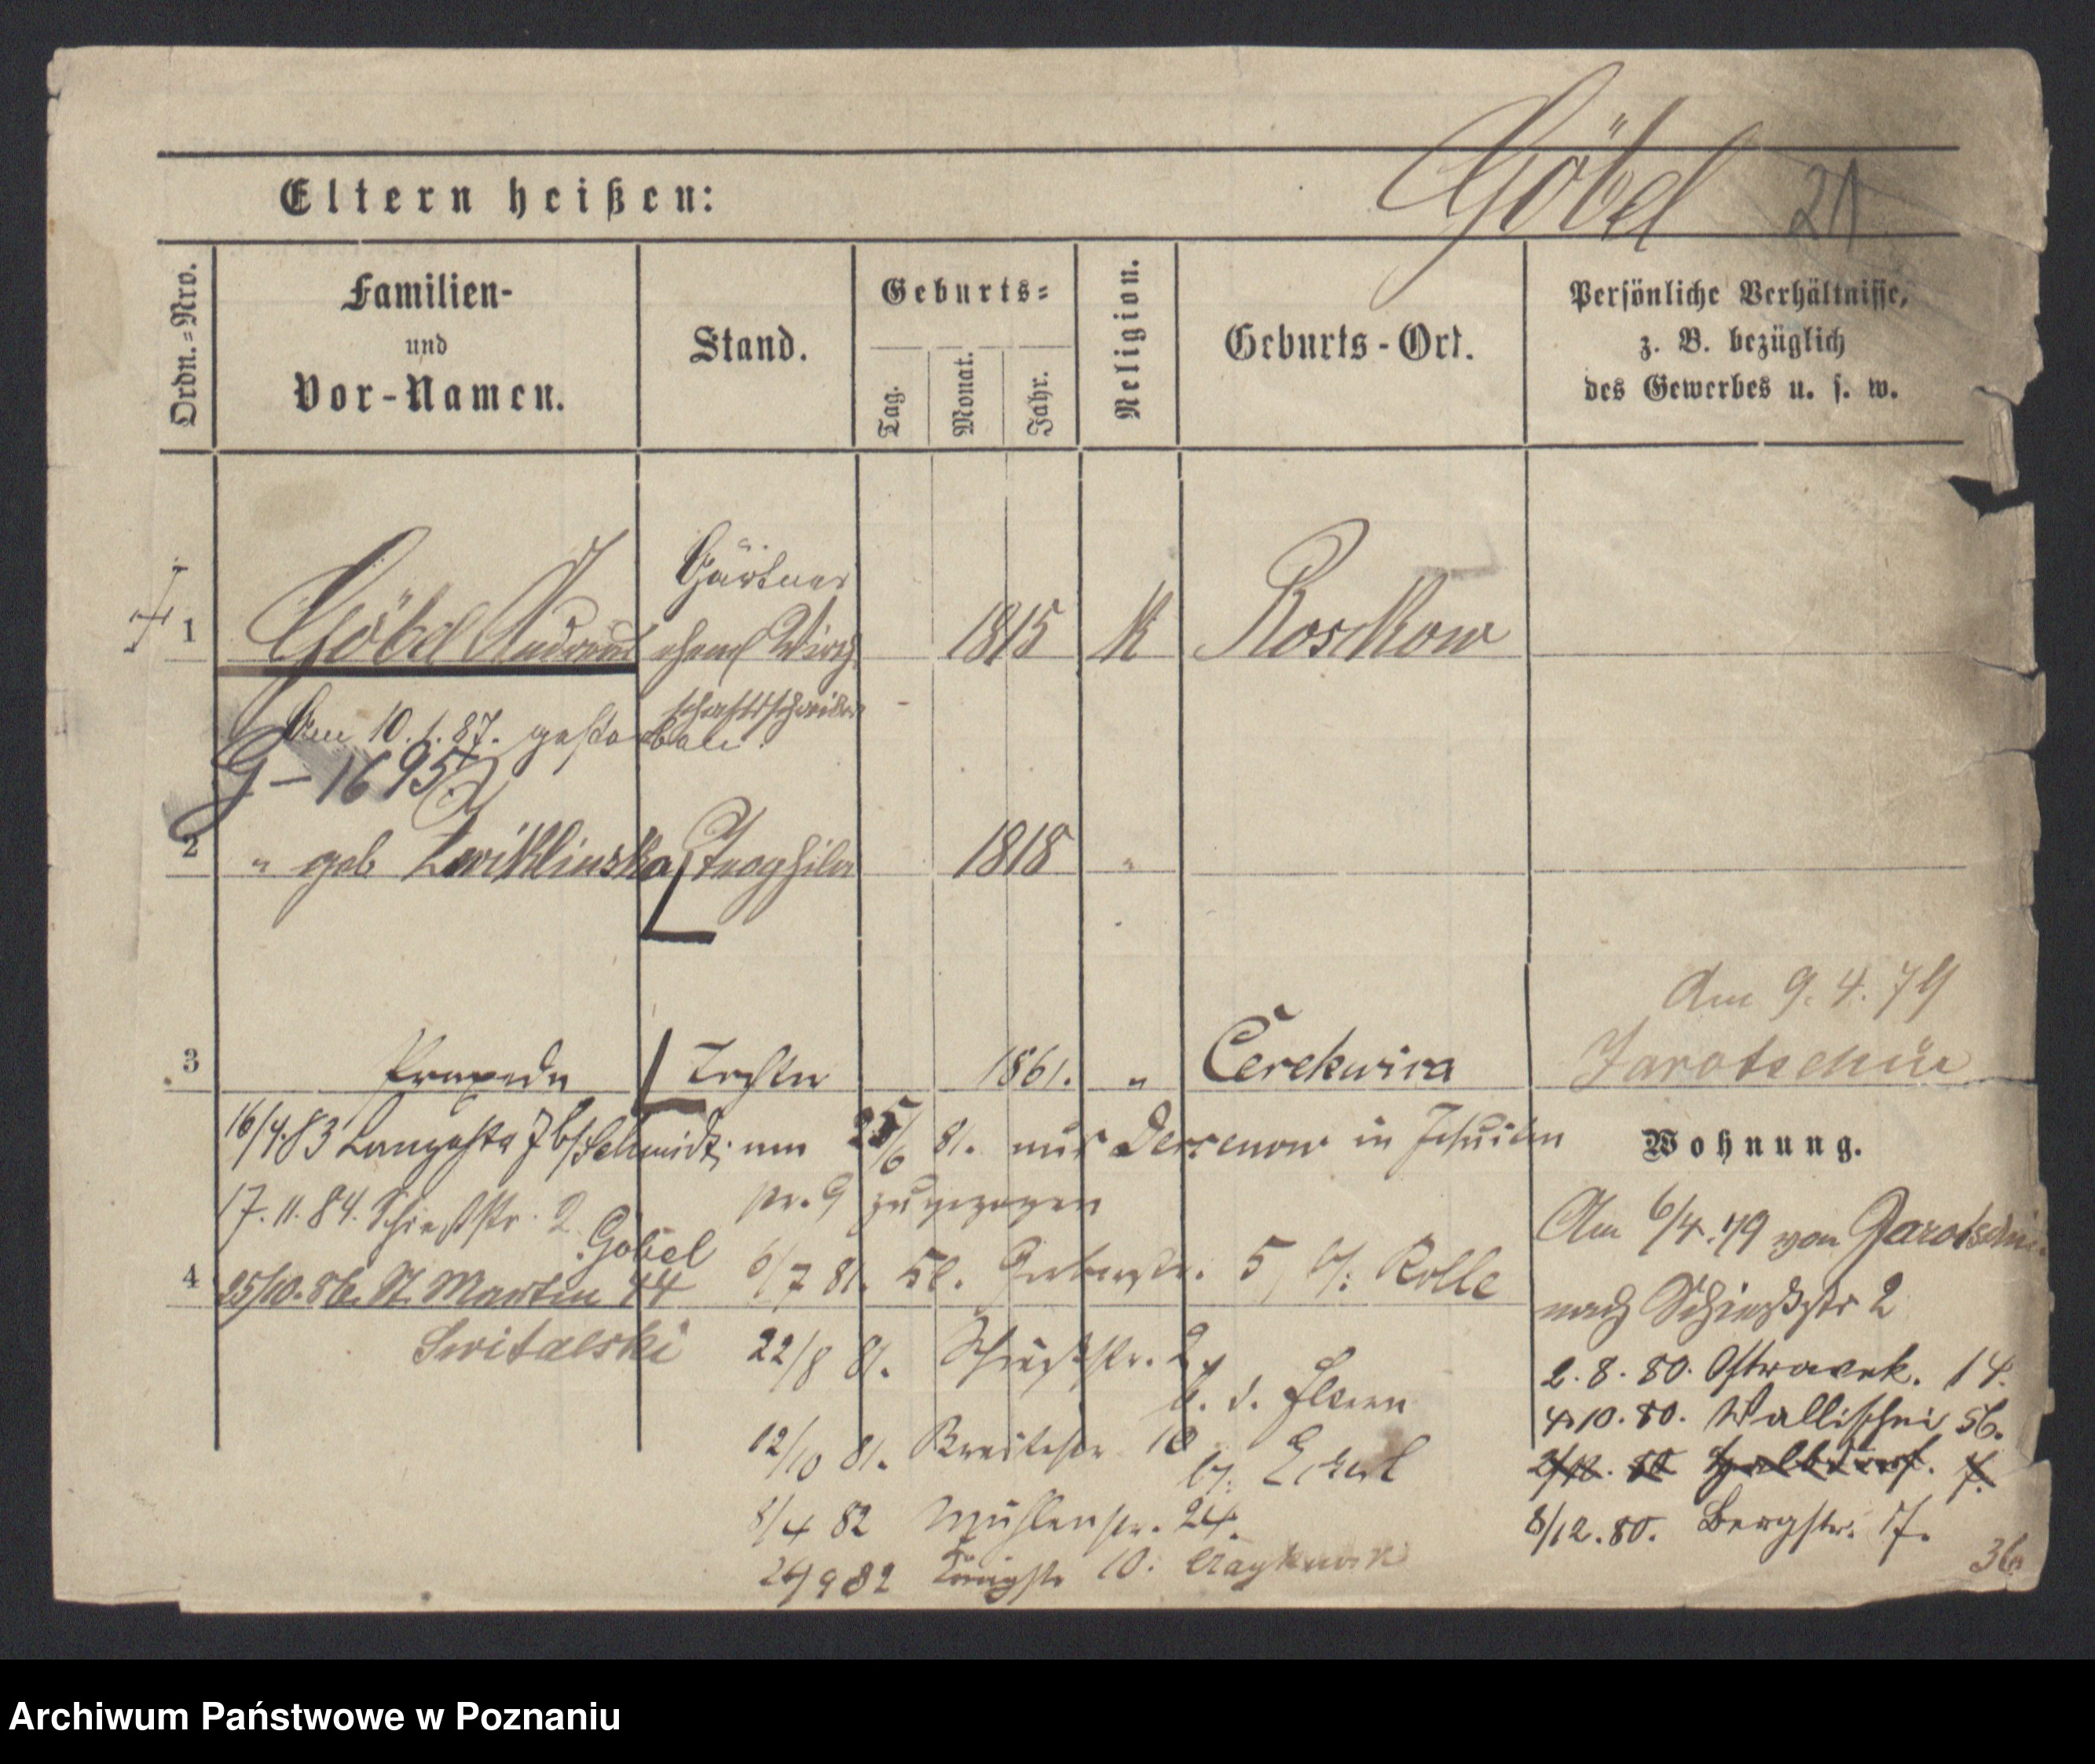 Göbel 21
Eltern heißen:
Ordn.=Nro.
Familien-
und
Vor-Namen.
Stand.
Geburts=
Tag.
Monat.
Jahr.
Religion.
Geburts-Ort.
Persönliche Verhältnisse,
z. B. bezüglich
des Gewerbes u. s. w.
Gärtner
1 Göbel Andreas ehem Wirth 1815 K Roskow
schaftsschreiber
Am 10.1.87. gestorben.
G-1695
2 " geb Zwiklinska 1818 "
Am 9.4.79
3 Praxeda Tochter 1861. " Cerekwica
Jarotschin
16/4.83 Langestr 7 b/Schmidt; am 25/6 81. aus in
Wohnung.
17.11.84. Schießstr. 2 Göbel
pr. 9 zugezogen
Am 6/4.79 von Jarotschin
nach Schießstr 2
4 25/10.86. St. Martin 44
Switalski
6/7 81. 5, b/: Rolle
22/8 81. Schießstr. 2
b. d. Eltern
12/10 81. Breitestr 10
b/: Eckert
8/4 82 Mühlenstr. 24.
26/9 82 Königstr 10.
2.8.80. Ostrowek. 14.
4.10.80. Wallischei 56.
2/12.80 Halbdorf. 7.
8/12.80. Bergstr. 17.
36
Archiwum Państwowe w Poznaniu